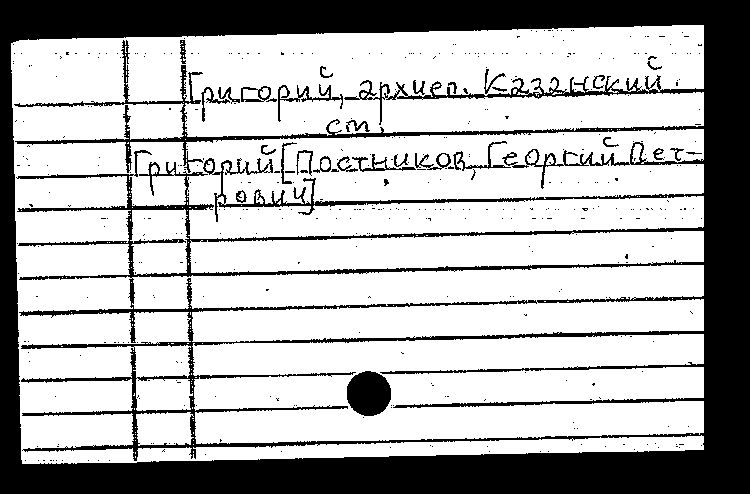 Григорий, архиеп. Казанский.
см.
Григорий [Постников, Георгий Пет-
рович]